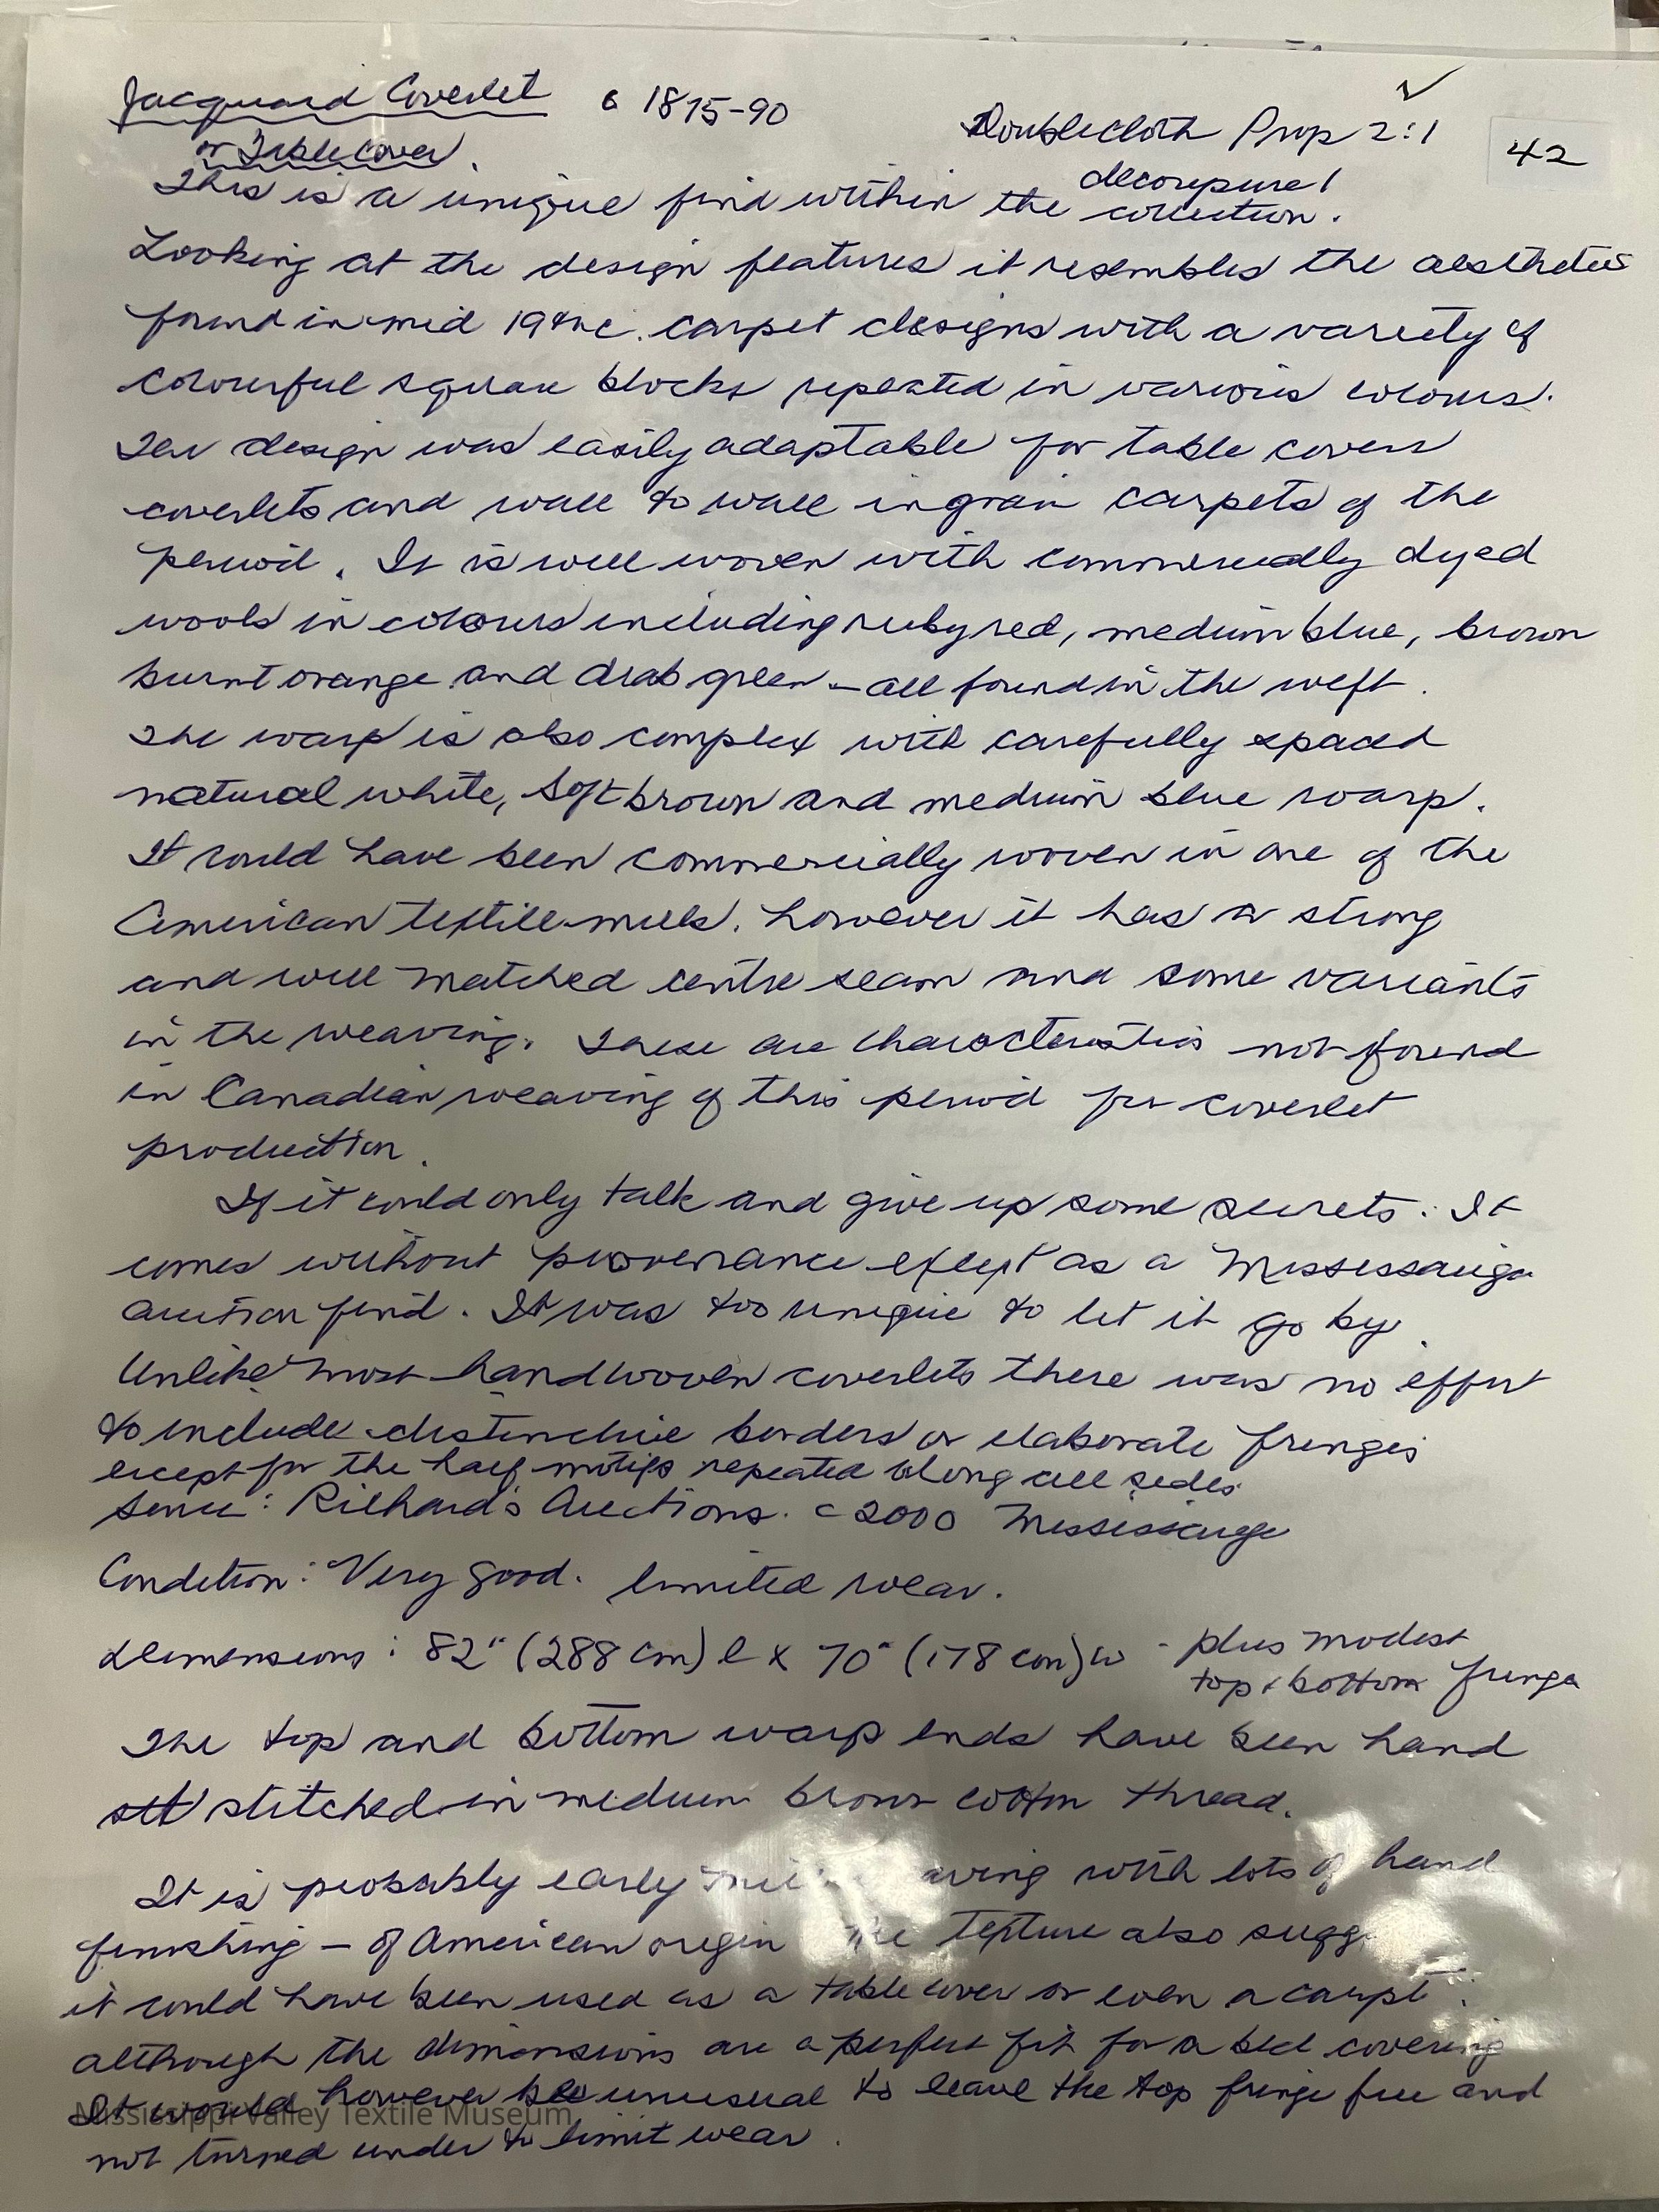 Jacquard Coverlet c 1875-90
Doublecloth Prop 2:1
42
or Table Cover.
This is a unique find within the collection.
Looking at the design features it resembles the aesthetics
found in mid 19thc. carpet designs with a variety of
colourful square blocks repeated in various colours.
The design was easily adaptable for table covers
coverlets and wall to wall ingrain carpets of the
period. It is well woven with commercially dyed
wools in colours including ruby red, medium blue, brown
burnt orange and drab green - all found in the weft.
The warp is also complex with carefully spaced
natural white, soft brown and medium blue warp.
It could have been commercially woven in one of the
American textile mills. however it has a strong
and well matched centre seam and some variants
in the weaving. These are characteristics not found
in Canadian weaving of this period for coverlet
production.
If it could only talk and give up some secrets. It
comes without provenance except as a Mississauga
auction find. It was too unique to let it go by.
Unlike most handwoven coverlets there was no effort
to include distinctive borders or elaborate fringes
except for the half motifs repeated along all sides
Source: Richard's Auctions. c2000 Mississauga
Condition: Very good. limited wear.
Dimensions: 82" (288 cm) l x 70" (178 cm) w - plus modest
top & bottom fringe
The top and bottom warp ends have been hand
stt stitched in medium brown cotton thread.
It is probably early with lots of hand
finishing - of American origin The texture also
it could have been used as a table cover or even a carpet.
although the dimensions are a perfect fit for a bed covering
It would however be unusual to leave the top fringe free and
not turned under to limit wear.
Mississippi Valley Textile Museum